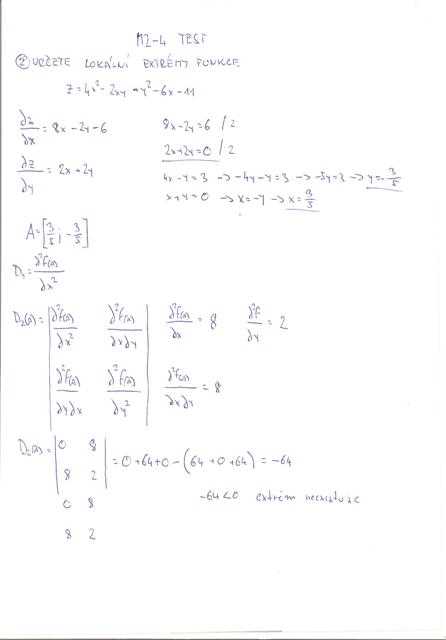 M2-4 TEST
② URČETE LOKÁLNÍ EXTRÉMY FUNKCE
z = 4x² - 2xy + y² - 6x - 11
∂z/∂x = 8x - 2y - 6    8x - 2y = 6 / 2
∂z/∂y = 2x + 2y    2x + 2y = 0 / 2
4x - y = 3 → -4y - y = 3 → -5y = 3 → y = -3/5
x + y = 0 → x = -y → x = 3/5
A = [3/5; -3/5]
D₁ = ∂²f(A)/∂x²
D₂(A) = | ∂²f(A)/∂x²  ∂²f(A)/∂x∂y |  ∂²f(A)/∂x = 8  ∂²f/∂y = 2
| ∂²f(A)/∂y∂x  ∂²f(A)/∂y² |  ∂²f(A)/∂x∂y = 8
D₂(A) = | 0 8 |
| 8 2 | = 0 + 64 + 0 - (64 + 0 + 64) = -64
0 8    -64 < 0 extrém neexistuje
8 2